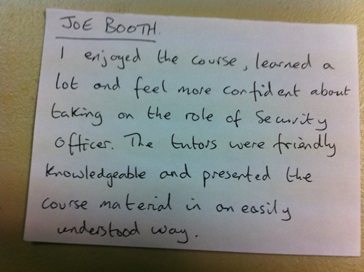 JOE BOOTH.
I enjoyed the course, learned a
lot and feel more confident about
taking on the role of Security
Officer. The tutors were friendly
knowledgeable and presented the
course material in an easily
understood way.